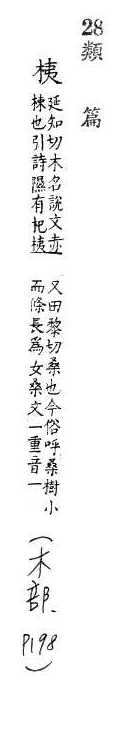 28類篇
桋
延知切木名說文赤
棟也引詩濕有杞桋
又田黎切桑也今俗呼桑樹小
而條長為女桑文一重音一
(木部、P198)